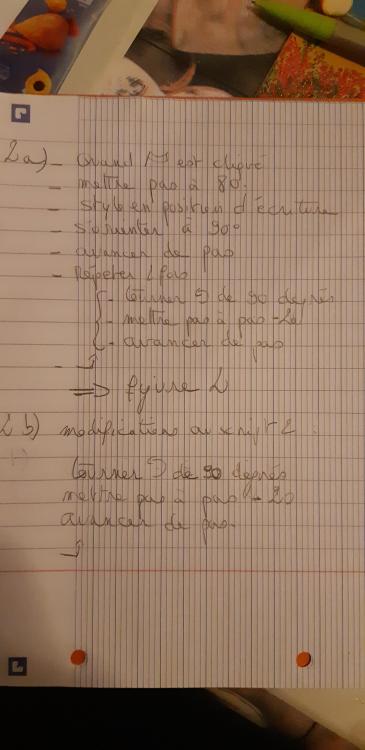 2a) - Quand est cliqué
- mettre pas à 80.
- style en position d'écriture
- s'orienter à 90°
- avancer de pas
- Répéter 2 fois
- tourner ↺ de 90 degrés
- mettre pas à pas - 20
- avancer de pas
-
=> figure 2
2 b) modifications au script 2 :
tourner ↺ de 90 degrés
mettre pas à pas - 20
avancer de pas.